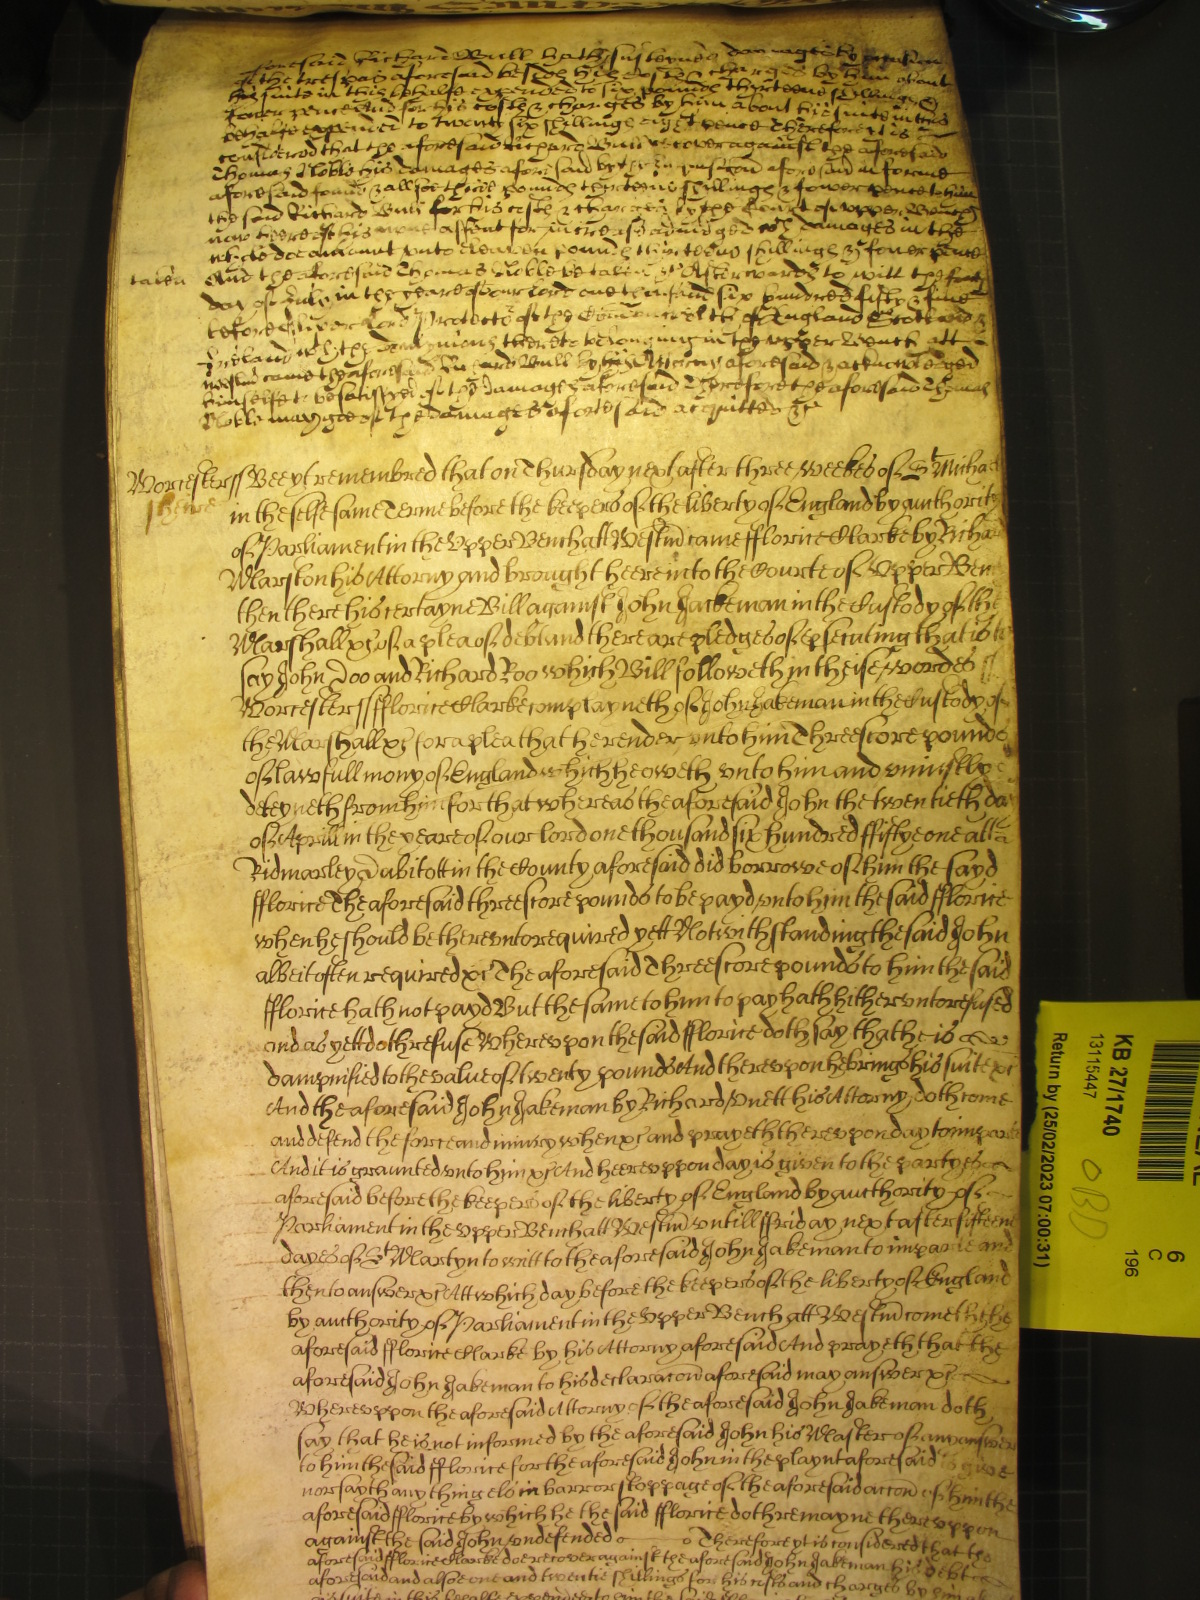 aforesaid Richard Bull hath susteyned damages by occasion
of the trespas aforesaid besides his costs & charges by him about
his suite in this behalfe expended to six pounds thirteene shillings &
fower pence And for his costs & charges by him about his suite in this
behalfe expended to twenty six shillings eight pence Therefore it is
considered that the aforesaid Richard Bull recover against the aforesaid
Thomas Noble his damages aforesaid by the Inquisicon aforesaid in forme
aforesaid found & alsoe three pounds thirteene shillings & fower pence to him
the said Richard Bull for his costs & charges by the Court of upper Bench
now heere of his owne assent for increase adiudged wch damages in the
whole doe amount unto eleaven pounds thirteene shillings & fower pence
taken And the aforesaid Thomas Noble be taken &c Afterwards to witt the
day of July in the yeare of our Lord one thousand six hundred fifty & five
before Oliver Lord Protector of the Comonwealth of England Scotland &
Ireland wth the dominions thereto belonging in the upper Bench att
Westmr came the aforesaid Richard Bull by his Attorny aforesaid & acknowledged
himselfe to be satisfyed of the damages aforesaid Therefore the aforesaid Thomas
Noble may goe of the damages aforesaid acquitted &c
Worcester ss Bee yt remembred that on Thursday next after three weekes of St Michaell
in the selfe same Terme before the keepers of the liberty of England by authority
of Parliament in the Upper Bench att Westmr came fflorice Clarke by Richard
Marston his Attorny and brought heere into the Courte of Upper Bench
then there his certayne Bill against John Jackeman in the Custody of the
Marshall xc of a plea of debt and there are pledges of psecuting that is to
say John Doo and Richard Roo which Bill followeth in theise wordes ss
Worcester ss fflorice Clarke complayneth of John Jakeman in the Custody of
the Marshall xc for a plea that he render unto him Threescore pounds
of lawfull mony of England which he oweth unto him and uniustly
deteyneth from him for that whereas the aforesaid John the twentieth day
of Aprill in the yeare of our lord one thousand six hundred ffiftye one att
Ridmarley Dabitott in the County aforesaid did borrowe of him the sayd
fflorice The aforesaid threescore pounds to be payd unto him the said fflorice
when he should be thereunto required yett Notwithstanding the said John
albeit often required xc The aforesaid Threescore pounds to him the said
fflorice hath not payd But the same to him to pay hath hitherunto refused
and as yett doth refuse Whereupon the said fflorice doth say that he is
dampnified to the value of twenty pounds And thereupon he brings his suite xc
And the aforesaid John Jakeman by Richard Dnett his Attorny doth come
and defend the force and iniury when xc and prayeth thereupon day to imparle
And it is graunted unto him xc And heereuppon day is given to the partyes
aforesaid before the keepers of the liberty of England by authority of
Parliament in the Upper Bench att Westmr untill ffriday next after fifteene
dayes of St Martyn to witt to the aforesaid John Jakeman to imparle and
then to answer xc Att which day before the keepers of the liberty of England
by authority of Parliament in the Upper Bench att Westmr cometh the
aforesaid fflorice Clarke by his Attorny aforesaid And prayeth that the
aforesaid John Jakeman to his declaracon aforesaid may answer xc
Whereuppon the aforesaid Attorny of the aforesaid John Jakeman doth
say that he is not informed by the aforesaid John his Master of any answer
to him the said fflorice for the aforesaid John in the playnt aforesaid to give
nor sayth any thing els in barr or stoppage of the aforesaid accon of him the
aforesaid fflorice by which he the said fflorice doth remayne thereuppon
against the said John undefended Therefore yt is considered that the
aforesaid fflorice Clarke doe recover against the aforesaid John Jakeman his debt
aforesaid and alsoe one and twentie shillings for his costs and charges by him
KB 27/1740
13115447
Return by (25/02/2023 07:00:31)
OBD
6
C
196